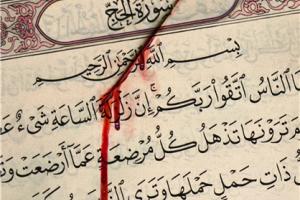 سورة الحج
بِسْمِ اللَّهِ الرَّحْمَٰنِ الرَّحِيمِ
ا النَّاسُ اتَّقُوا رَبَّكُمْ إِنَّ زَلْزَلَةَ السَّاعَةِ شَيْءٌ عَ
تَرَوْنَهَا تَذْهَلُ كُلُّ مُرْضِعَةٍ عَمَّا أَرْضَعَتْ وَتَ
ذَاتِ حَمْلٍ حَمْلَهَا وَتَرَى